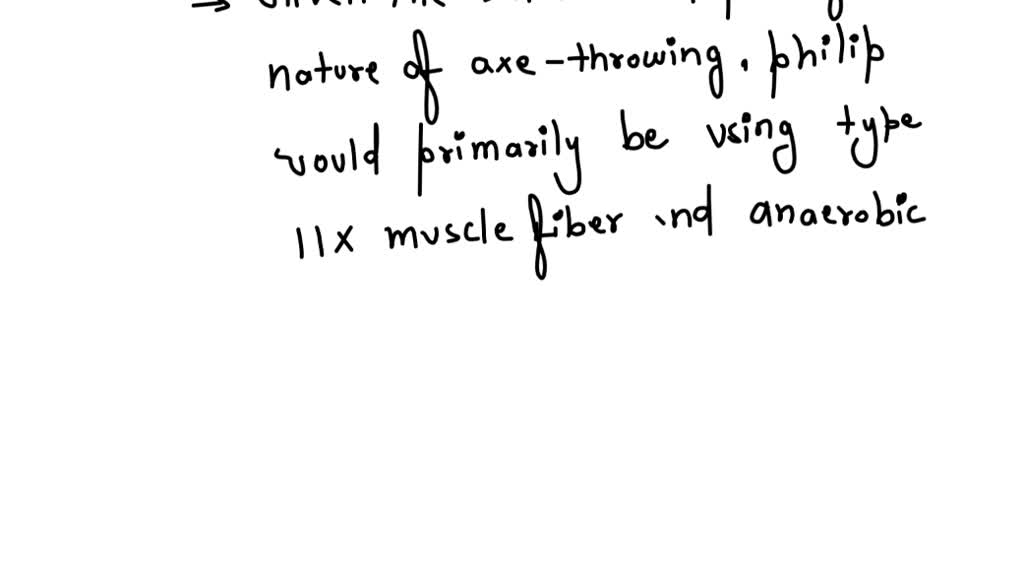 → Given the
nature of axe-throwing, philip
would primarily be using type
11x muscle fiber and anaerobic